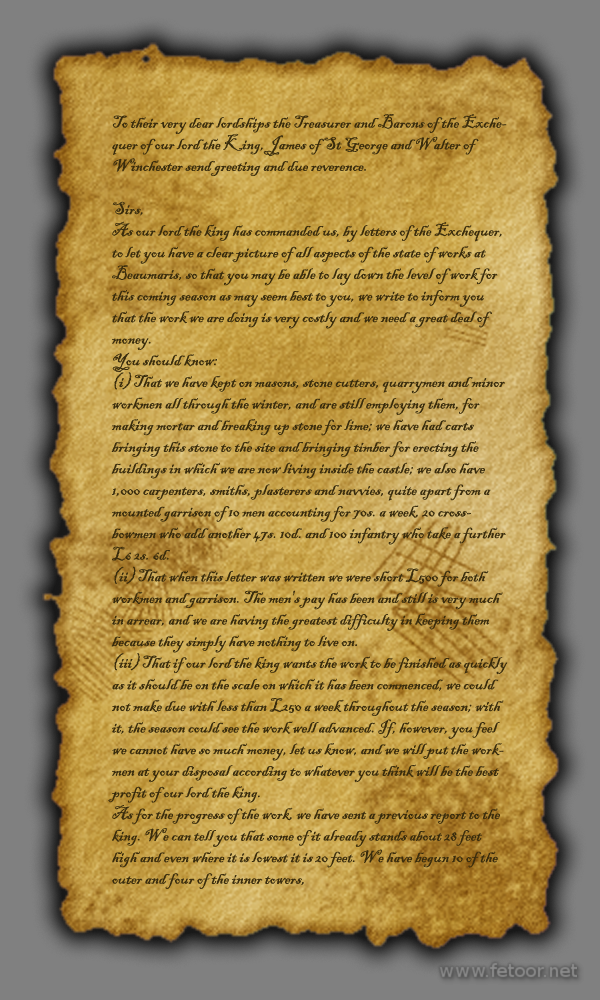 To their very dear lordships the Treasurer and Barons of the Exche-
quer of our lord the King, James of St George and Walter of
Winchester send greeting and due reverence.
Sirs,
As our lord the king has commanded us, by letters of the Exchequer,
to let you have a clear picture of all aspects of the state of works at
Beaumaris, so that you may be able to lay down the level of work for
this coming season as may seem best to you, we write to inform you
that the work we are doing is very costly and we need a great deal of
money.
You should know:
(i) That we have kept on masons, stone cutters, quarrymen and minor
workmen all through the winter, and are still employing them, for
making mortar and breaking up stone for lime; we have had carts
bringing this stone to the site and bringing timber for erecting the
buildings in which we are now living inside the castle; we also have
1,000 carpenters, smiths, plasterers and navvies, quite apart from a
mounted garrison of 10 men accounting for 70s. a week, 20 cross-
bowmen who add another 47s. 10d. and 100 infantry who take a further
£6 2s. 6d.
(ii) That when this letter was written we were short £500 for both
workmen and garrison. The men's pay has been and still is very much
in arrear, and we are having the greatest difficulty in keeping them
because they simply have nothing to live on.
(iii) That if our lord the king wants the work to be finished as quickly
as it should be on the scale on which it has been commenced, we could
not make due with less than £250 a week throughout the season; with
it, the season could see the work well advanced. If, however, you feel
we cannot have so much money, let us know, and we will put the work-
men at your disposal according to whatever you think will be the best
profit of our lord the king.
As for the progress of the work, we have sent a previous report to the
king. We can tell you that some of it already stands about 28 feet
high and even where it is lowest it is 20 feet. We have begun 10 of the
outer and four of the inner towers,
www.fetoor.net